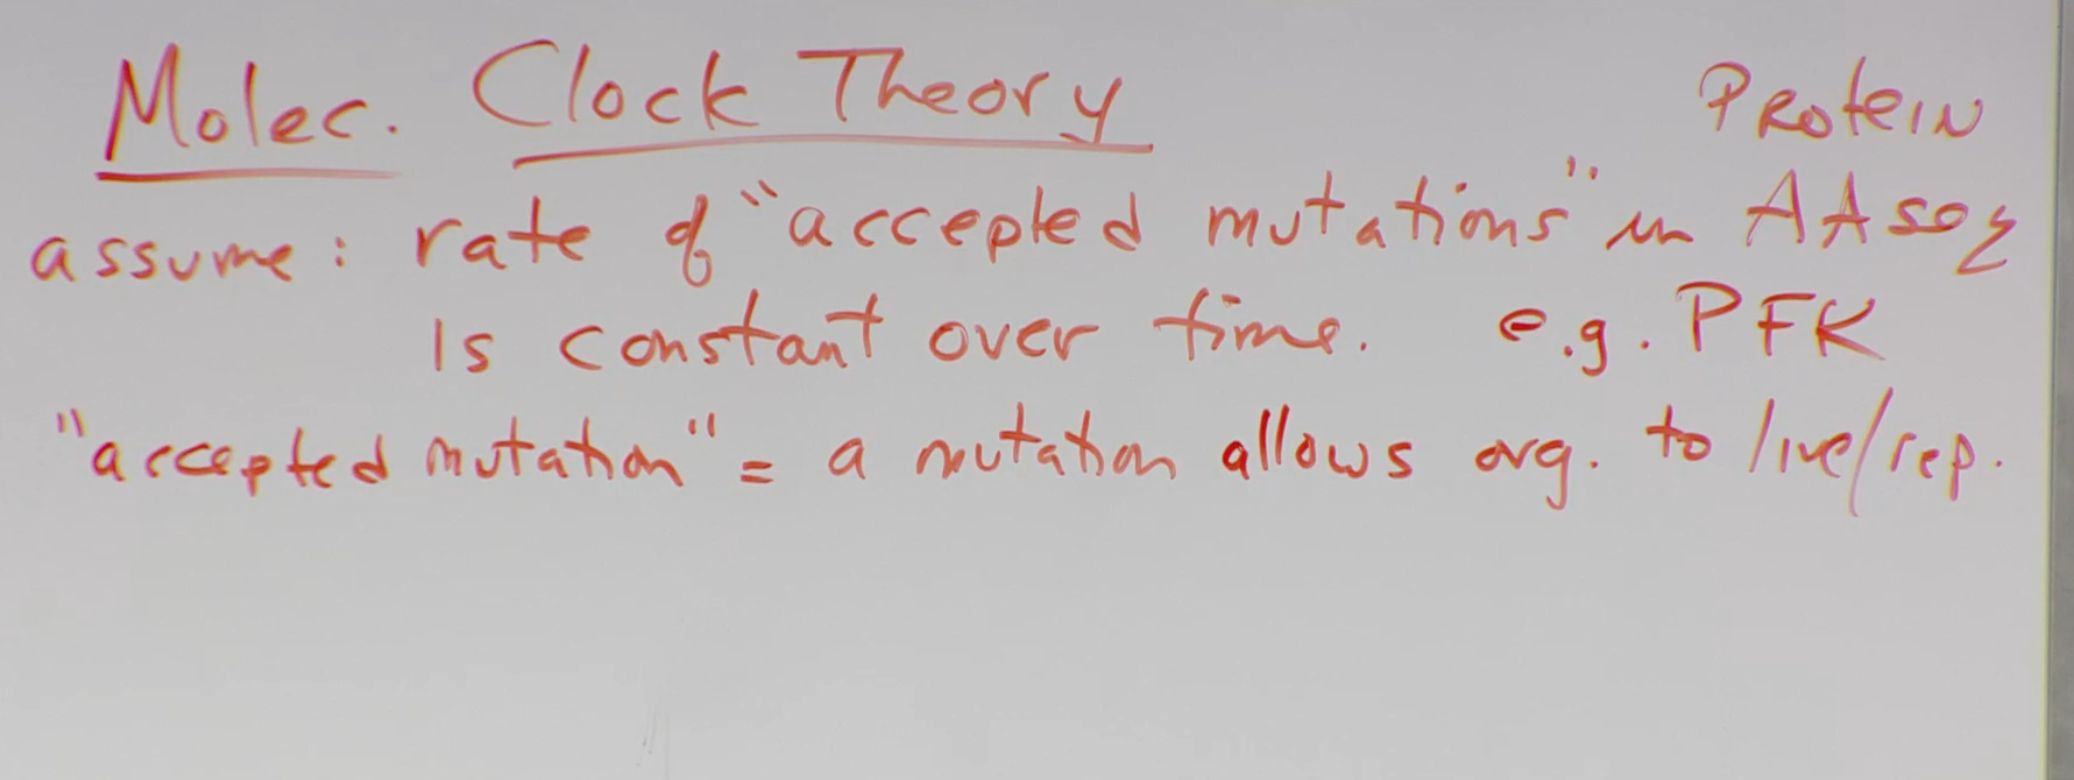 Molec. Clock Theory
Protein
assume: rate of "accepted mutations" in AA seq
is constant over time. e.g. PFK
"accepted mutation" = a mutation allows org. to live/rep.